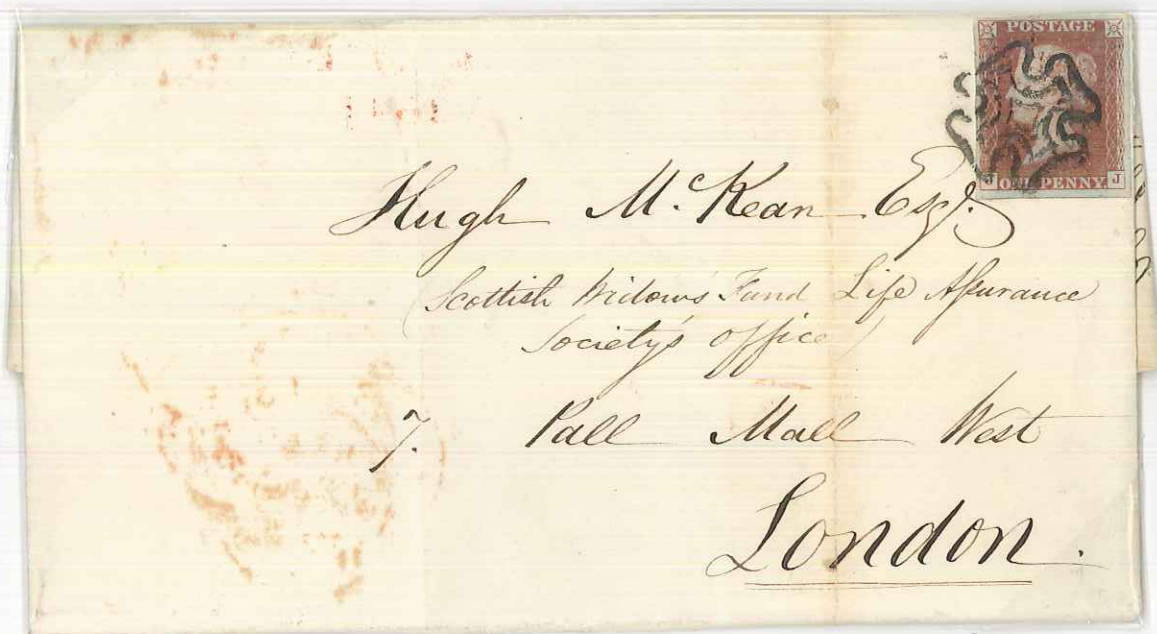 POSTAGE
J ONE PENNY. J
Hugh McKean Esqr.
(Scottish Widows' Fund Life Assurance
Society's office)
7. Pall Mall West
London.